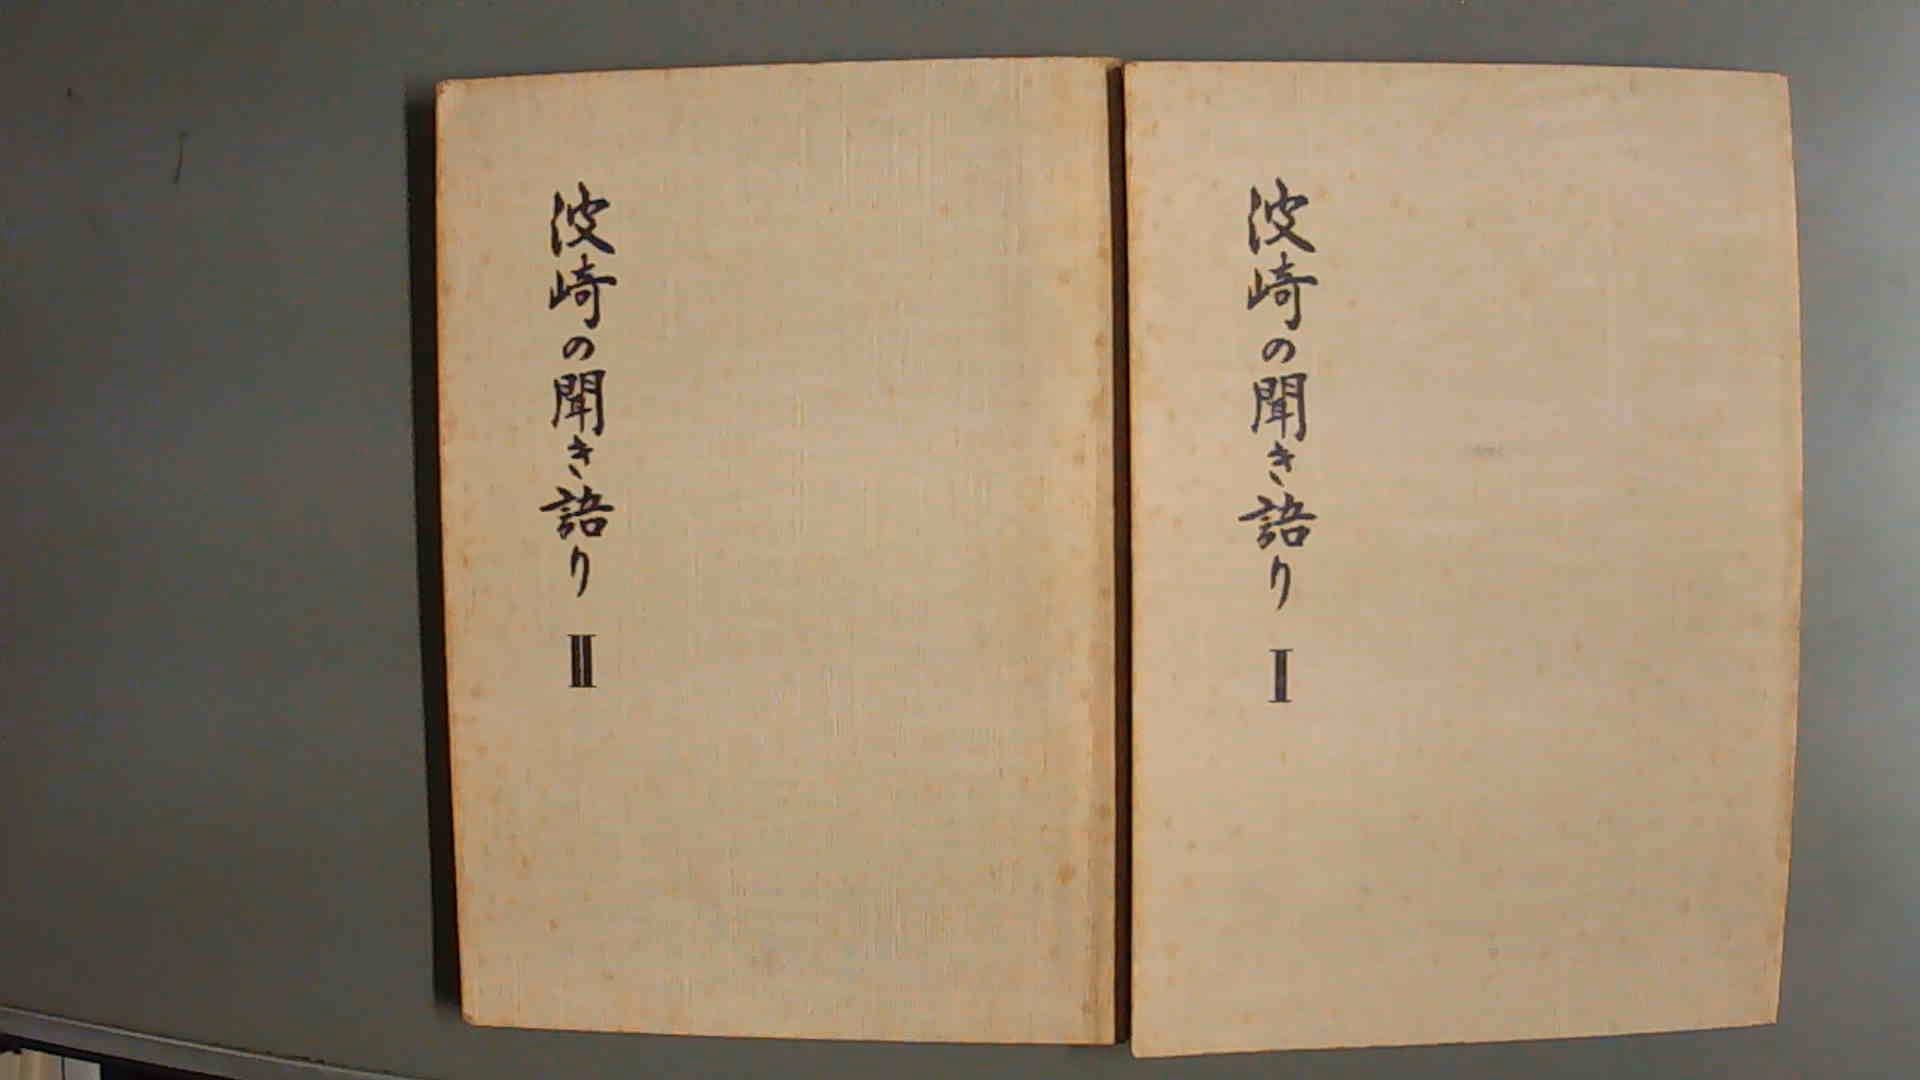 波崎の聞き語り Ⅰ
波崎の聞き語り Ⅱ